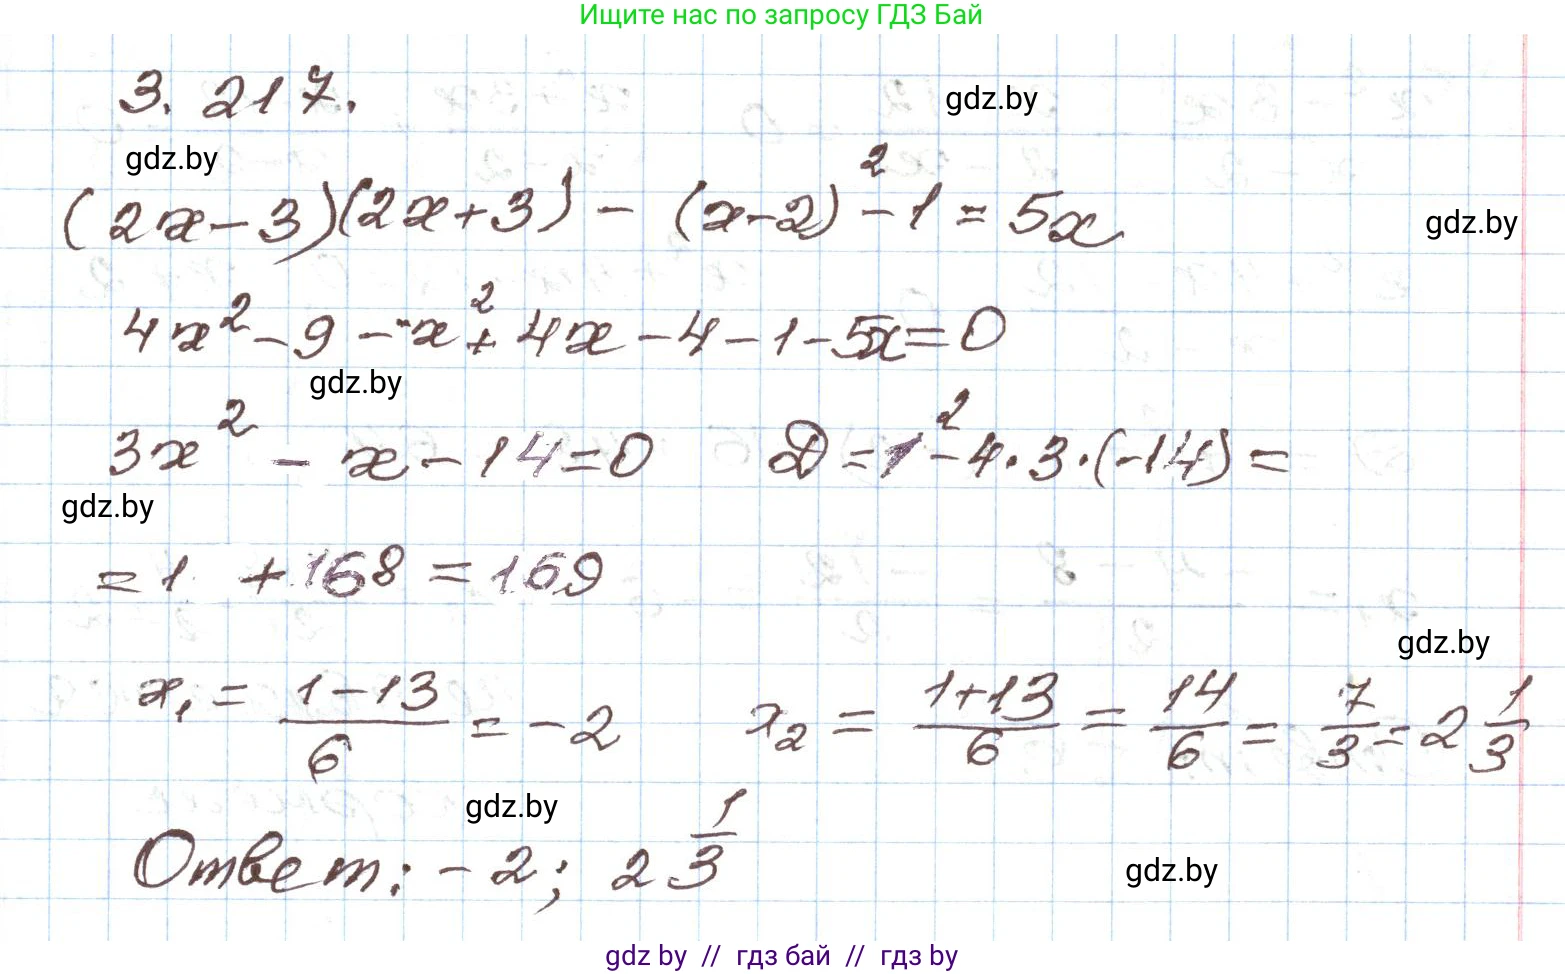 Ищите нас по запросу ГДЗ Бай
3. 217.
gdz.by
gdz.by
(2x-3)(2x+3) - (x-2)² - 1 = 5x
gdz.by
4x² - 9 - x² + 4x - 4 - 1 - 5x = 0
gdz.by
3x² - x - 14 = 0 D = 1² - 4·3·(-14) =
gdz.by
= 1 + 168 = 169
gdz.by
x₁ = (1-13)/6 = -2 x₂ = (1+13)/6 = 14/6 = 7/3 = 2 1/3
gdz.by
Ответ: -2; 2 1/3
gdz.by
gdz by // гдз бай // гдз by